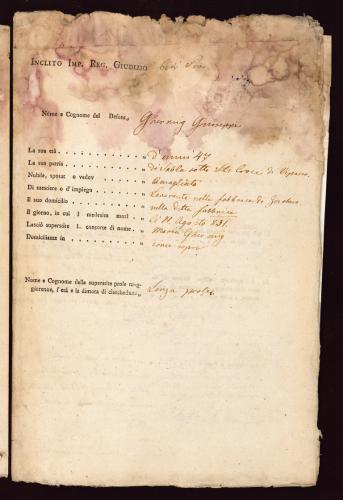 INCLITO IMP. REG. GIUDIZIO
Nome e Cognome del Defonto Giuseppe
La sua età d'anni 47
La sua patria di sotto Sta Croce di
Nobile, sposat e vedov Amogliato
Di mestiere o d'impiego Lavorante nella fabbrica di
Il suo domicilio nella detta fabbrica
Il giorno, in cui i medesim morì li 11 Agosto 831.
Lasciò superstite l. consorte di nome Maria
Domiciliante in come sopra
Nome e Cognome della superstite prole mag-
giorenne, l'età e la dimora di ciascheduno Senza prole